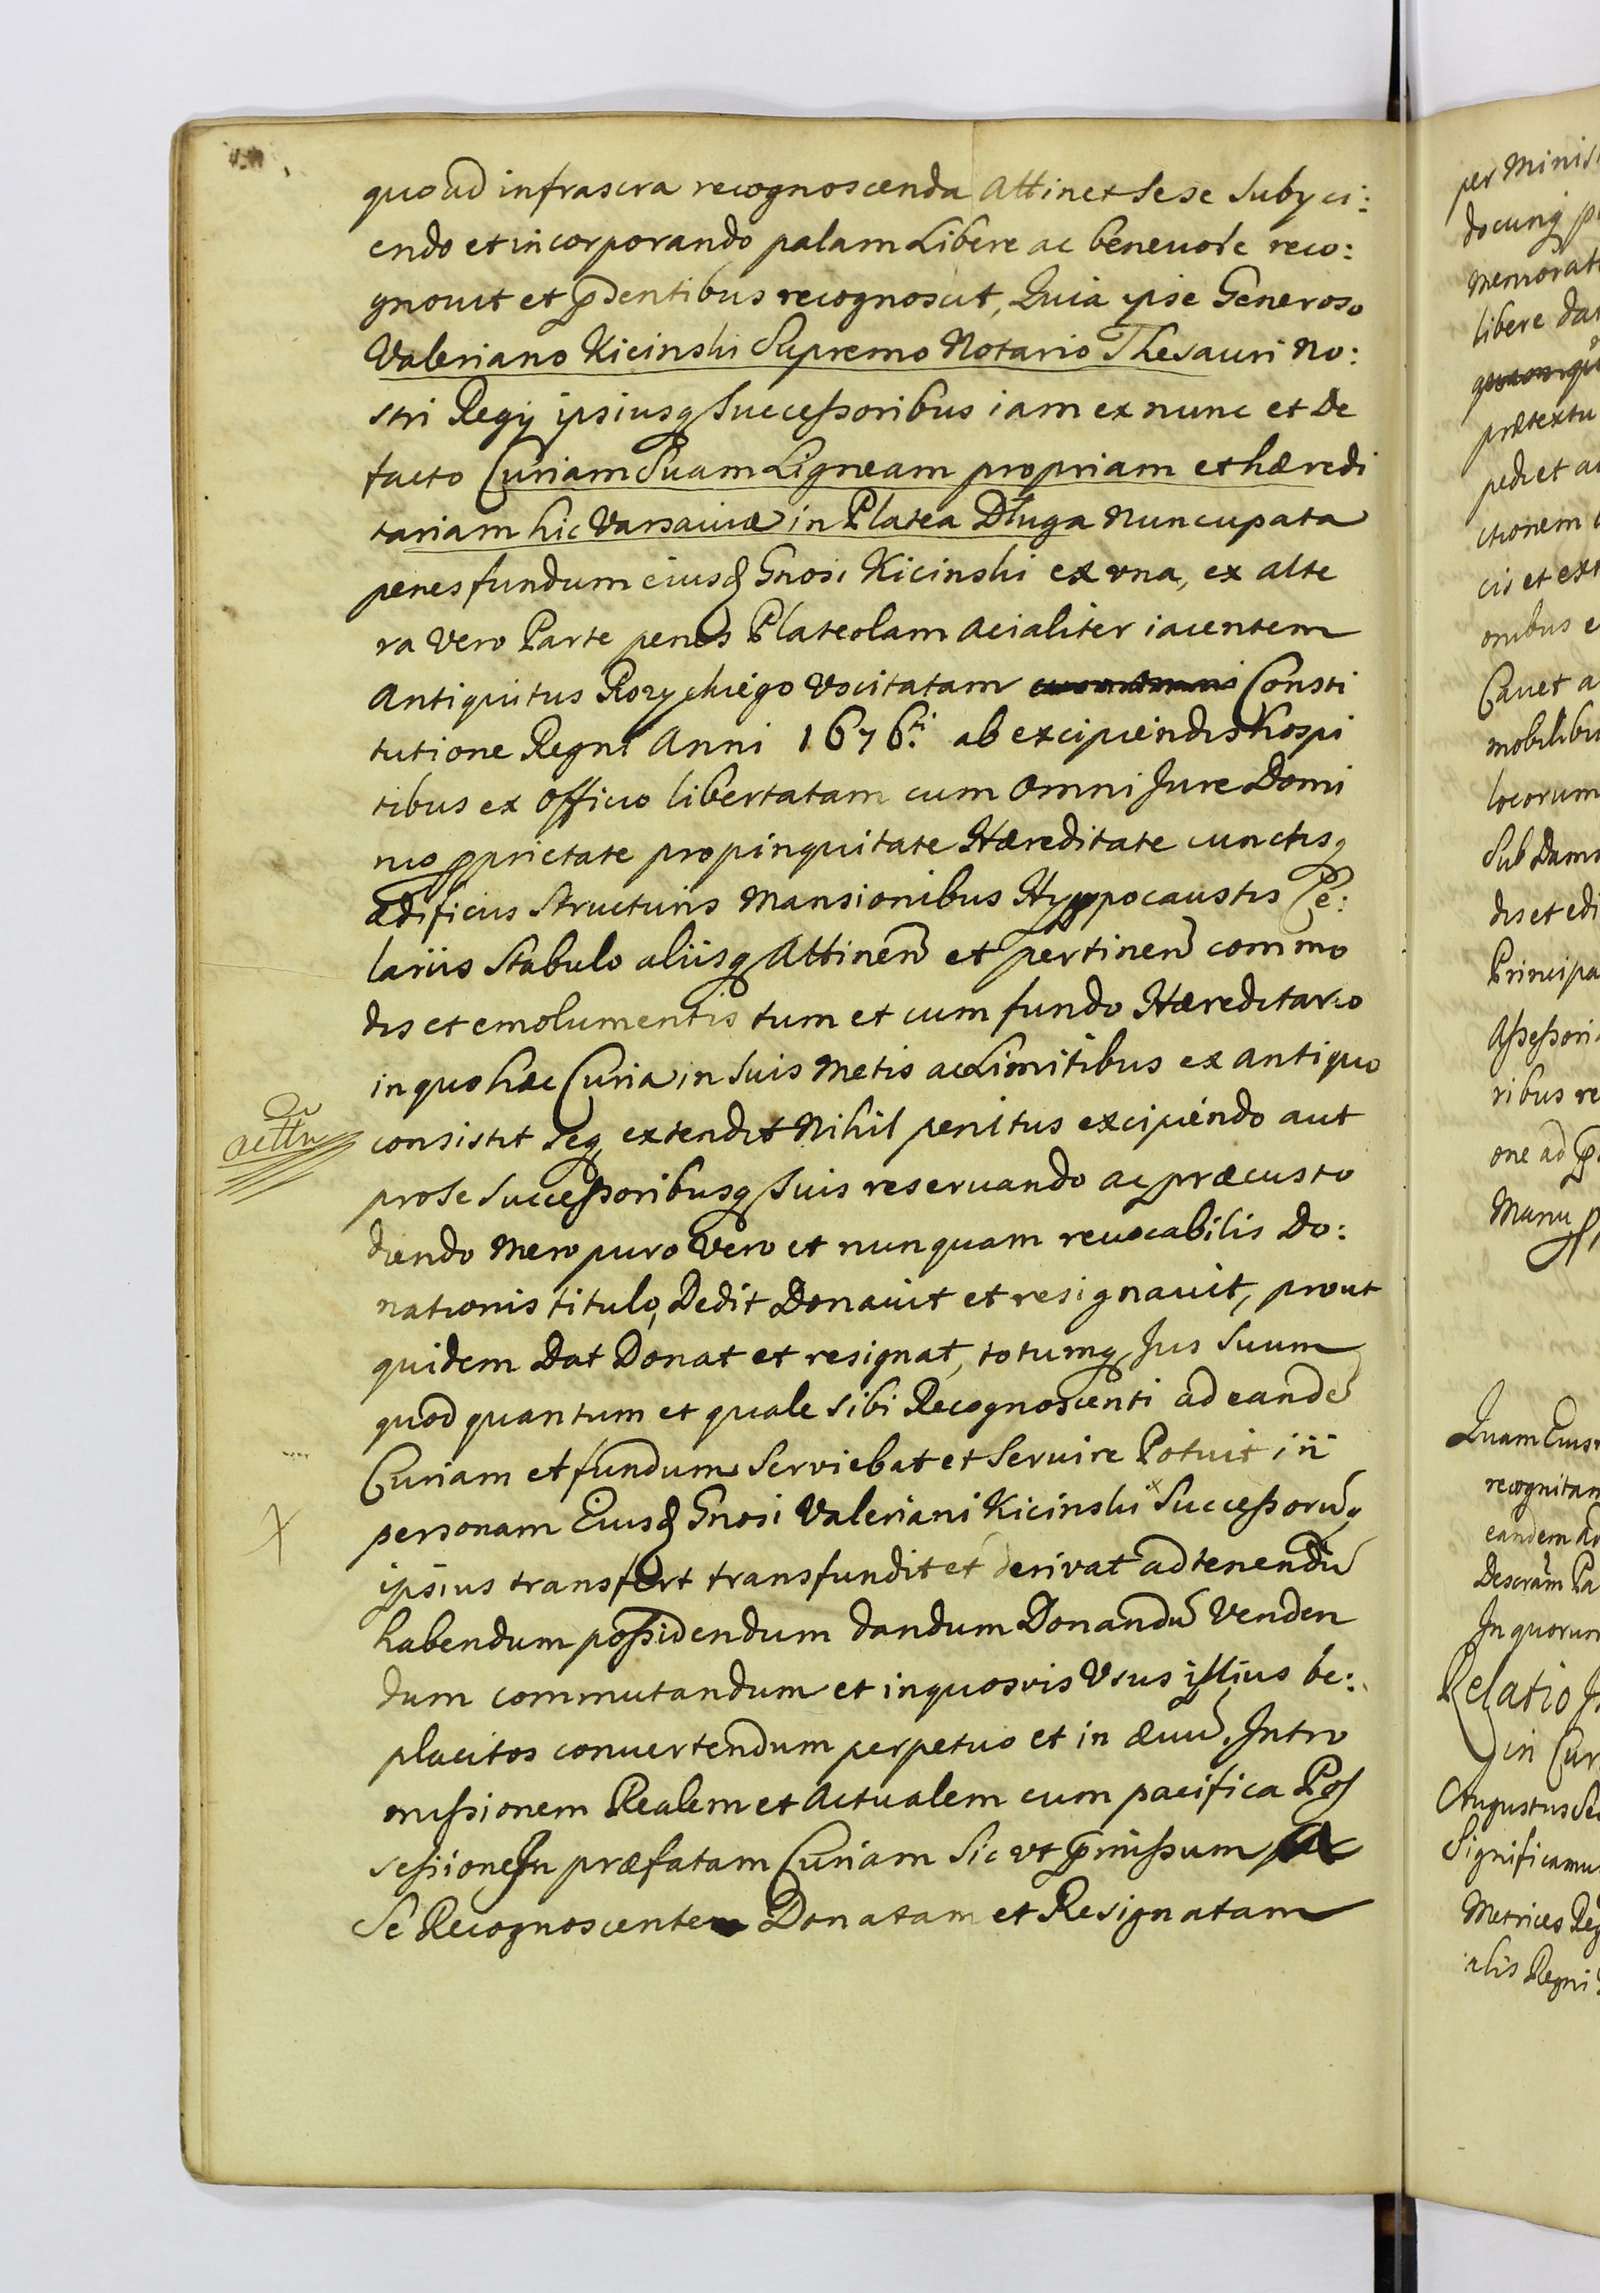 quoad infrascra recognoscenda Attinet Sese Subyci:
endo et incorporando palam Libere ac beneuole reco:
gnouit et pñdentibus recognoscit, Quia ipse Generoso
Valeriano Kicinski Supremo Notario Thesauri No:
stri Regij ipsiusq Successoribus iam ex nunc et De
facto Curiam Suam Ligneam propriam et hæredi
tariam hic Varsauiæ in Platea Długa Nuncupata
penes fundum eiusd Gnosi Kicinski ex vna, ex alte
ra Vero Parte penes Plateolam Acialiter iacentem
Antiquitus Vocitatam Consti
tutione Regni Anni 1676ti ab excipiendis hospi
tibus ex officio libertatam cum Omni Jure Domi
nio pprietate propinquitate Hæreditate cunctisq
ædificiis Structuris Mansionibus Hyppocaustis Ce:
lariis Stabulo aliisq Attinen et pertinen commo
dis et emolumentis tum et cum fundo Hæreditario
in quo hæc Curia in Suis Metis ac Limitibus ex antiquo
consistit Seq extendit Nihil penitus excipiendo aut
pro Se Successoribusq Suis reseruando ac præcusto
diendo Mero puro Vero et nunquam reuocabilis Do:
nationis titulo, Dedit Donauit et resignauit, prout
quidem Dat Donat et resignat, totumq Jus Suum
quod quantum et quale sibi Recognoscenti ad eandē
Curiam et fundum Serviebat et Seruire Potuit in
personam Eiusd Gnosi Valeriani Kicinski Successorūq
ipsius transfert transfundit et derivat ad tenendū
habendum possidendum dandum Donandū Venden
dum commutandum et in quosvis Vsus illius be:
placitos conuertendum perpetuo et in æuū. Intro
missionem Realem et Actualem cum pacifica Pos
sessione In præfatam Curiam Sic vt pmissum
Se Recognoscentem Donatam et Resignatam
per Minis
docunq
Memorat
libere da
prætextu
pedi et a
ctionem
cis et ext
onibus e
Cauet a
mobilibu
locorum
Sub Dam
dis et edi
Principa
Assessori
ribus re
one ad
Manu
Quam Eius
recognitam
eandem ad
Descrām Pa
In quorum
Relatio
in Cur
Augustus Se
Significamus
Metrices Reg
alis Regni